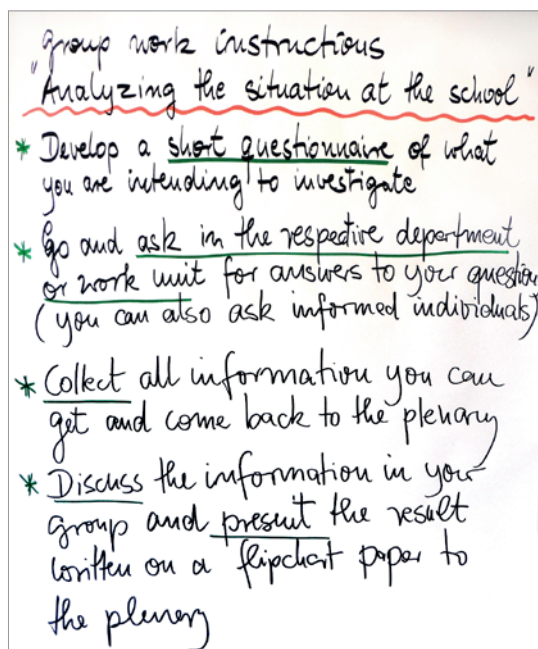 group work instructions
"Analyzing the situation at the school"
* Develop a short questionnaire of what
you are intending to investigate
* Go and ask in the respective department
or work unit for answers to your question
(you can also ask informed individuals)
* Collect all information you can
get and come back to the plenary
* Discuss the information in your
group and present the result
written on a flipchart paper to
the plenary